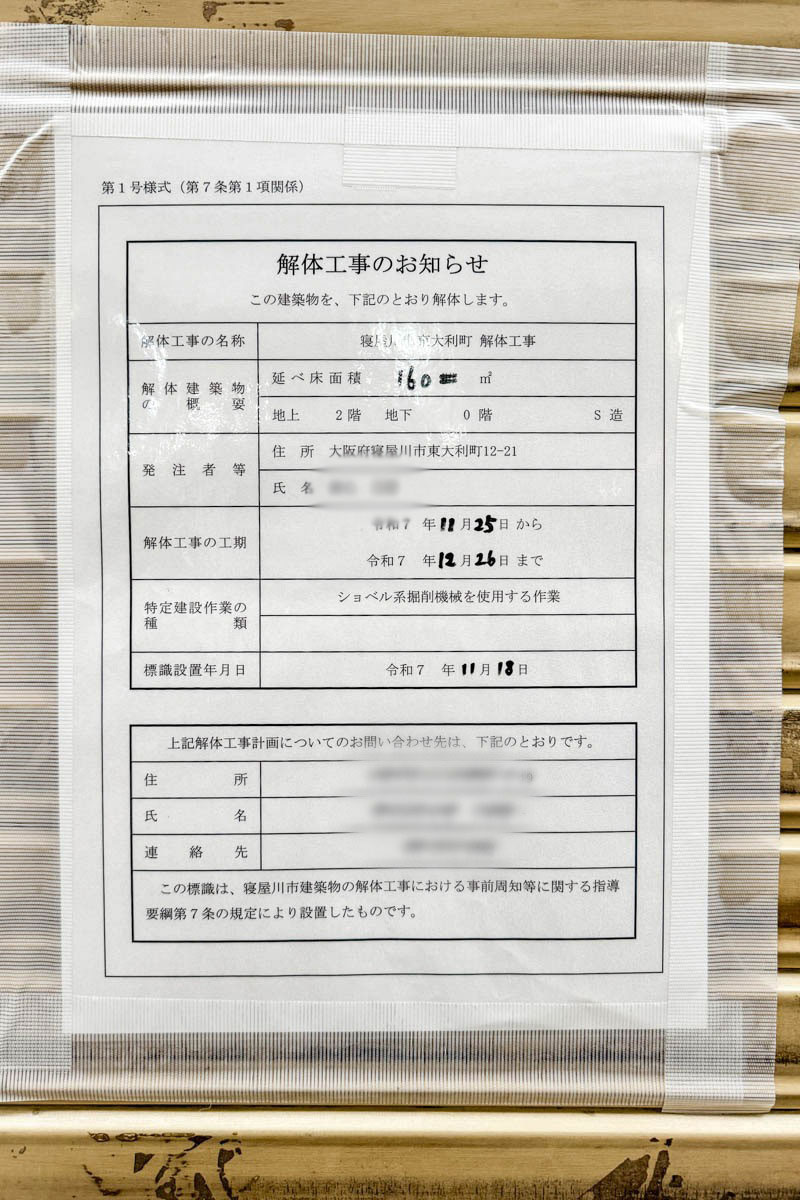 第1号様式（第7条第1項関係）
解体工事のお知らせ
この建築物を、下記のとおり解体します。
解体工事の名称 寝屋川市東大利町 解体工事
解体建築物の概要 延べ床面積 160 ㎡
地上 2階 地下 0階 S造
発注者等 住所 大阪府寝屋川市東大利町12-21
氏名
解体工事の工期 令和7 年11月25日から
令和7 年12月26日まで
特定建設作業の種類 ショベル系掘削機械を使用する作業
標識設置年月日 令和7 年11月18日
上記解体工事計画についてのお問い合わせ先は、下記のとおりです。
住所
氏名
連絡先
この標識は、寝屋川市建築物の解体工事における事前周知等に関する指導
要綱第7条の規定により設置したものです。